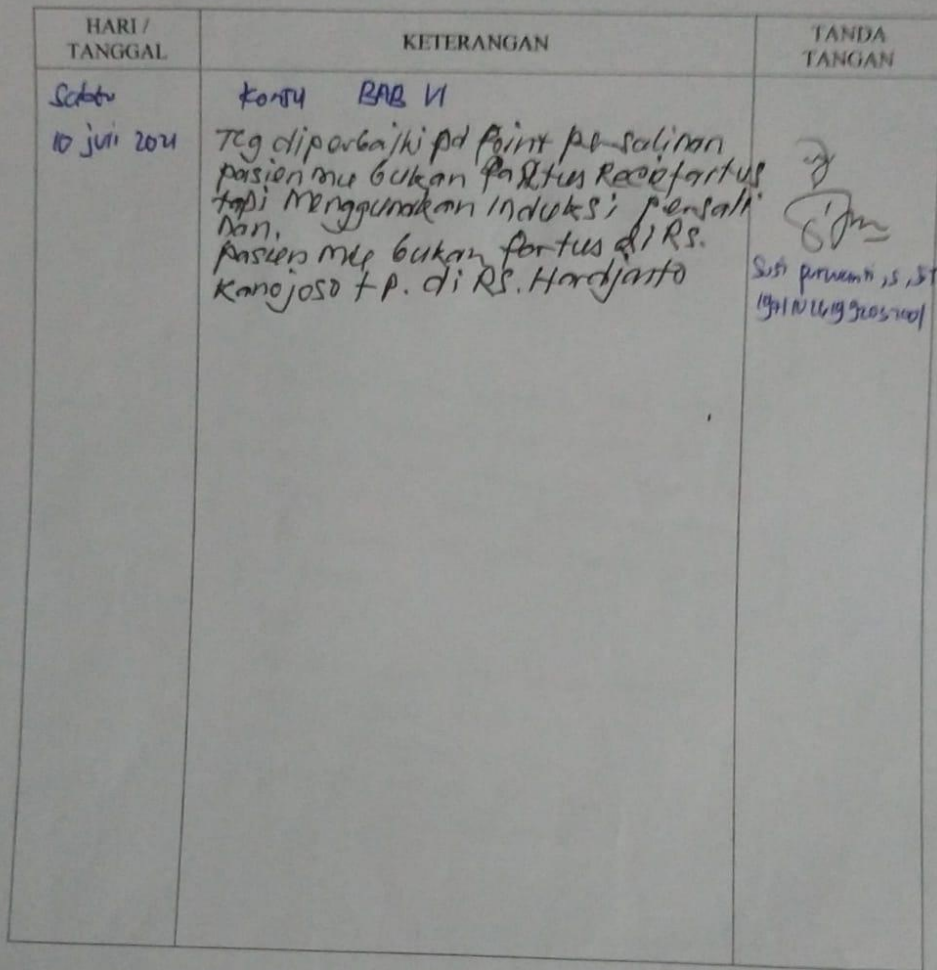 HARI / TANGGAL
KETERANGAN
TANDA TANGAN
Sabtu
Konsul BAB VI
10 juli 2021
Tlg diperbaiki pd Point persalinan
pasien mu bukan Partus
tapi Menggunakan Induksi persali
nan.
Pasien mu bukan Partus di RS.
Kanojoso tp. di RS. Hardjanto
Susi purwanti, S, ST